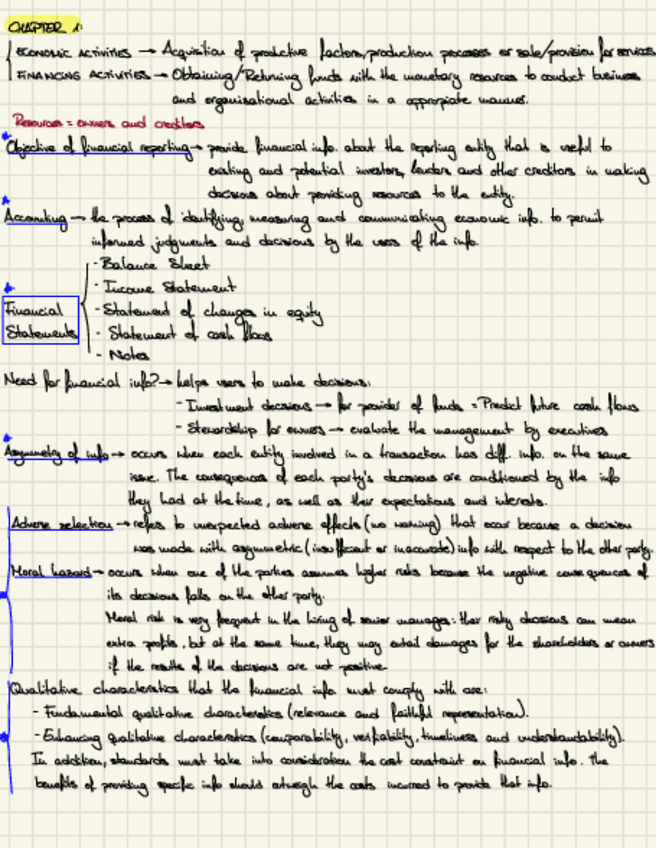 CHAPTER 1:
ECONOMIC ACTIVITIES → Acquisition of productive factors, production processes or sale/provision for services
FINANCING ACTIVITIES → Obtaining/Returning funds with the monetary resources to conduct business
and organisational activities in a appropiate manner.
Resources = owners and creditors
Objective of financial reporting → provide financial info. about the reporting entity that is useful to
existing and potential investors, lenders and other creditors in making
decisions about providing resources to the entity.
Accounting → the process of identifying, measuring and communicating economic info. to permit
informed judgments and decisions by the users of the info.
- Balance Sheet
- Income Statement
Financial - Statement of changes in equity
Statements - Statement of cash flows
- Notes
Need for financial info? → helps users to make decisions:
- Investment decisions → for provider of funds = Predict future cash flows
- Stewardship for owners → evaluate the management by executives
Asymmetry of info → occurs when each entity involved in a transaction has diff. info. on the same
issue. The consequences of each party's decisions are conditioned by the info
they had at the time, as well as their expectations and interests.
Adverse selection → refers to unexpected adverse effects (no warning) that occur because a decision
was made with asymmetric (insufficient or inaccurate) info with respect to the other party.
Moral hazard → occurs when one of the parties assumes higher risks because the negative consequences of
its decisions falls on the other party.
Moral risk is very frequent in the hiring of senior manages: their risky decisions can mean
extra profits, but at the same time, they may entail damages for the shareholders or owners
if the results of the decisions are not positive
Qualitative characteristics that the financial info must comply with are:
- Fundamental qualitative characteristics (relevance and faithful representation).
- Enhancing qualitative characteristics (comparability, verifiability, timeliness and understandability).
In addition, standards must take into consideration the cost constraint on financial info. The
benefits of providing specific info should outweigh the costs incurred to provide that info.